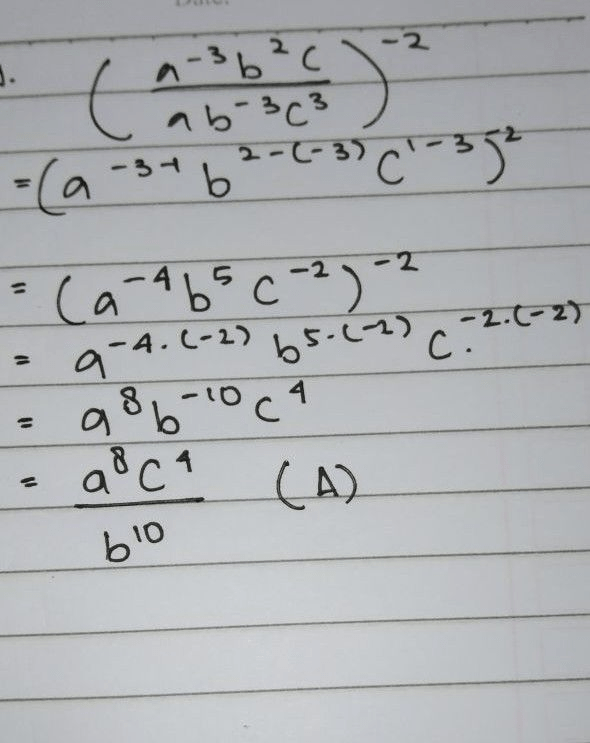 Date:
1. (a⁻³b²c / ab⁻³c³)⁻²
=(a⁻³⁻¹ b²⁻⁽⁻³⁾ c¹⁻³)⁻²
= (a⁻⁴b⁵c⁻²)⁻²
= a^-4·(-2) b^5·(-2) c·^-2·(-2)
= a⁸b⁻¹⁰c⁴
= a⁸c⁴ / b¹⁰ (A)